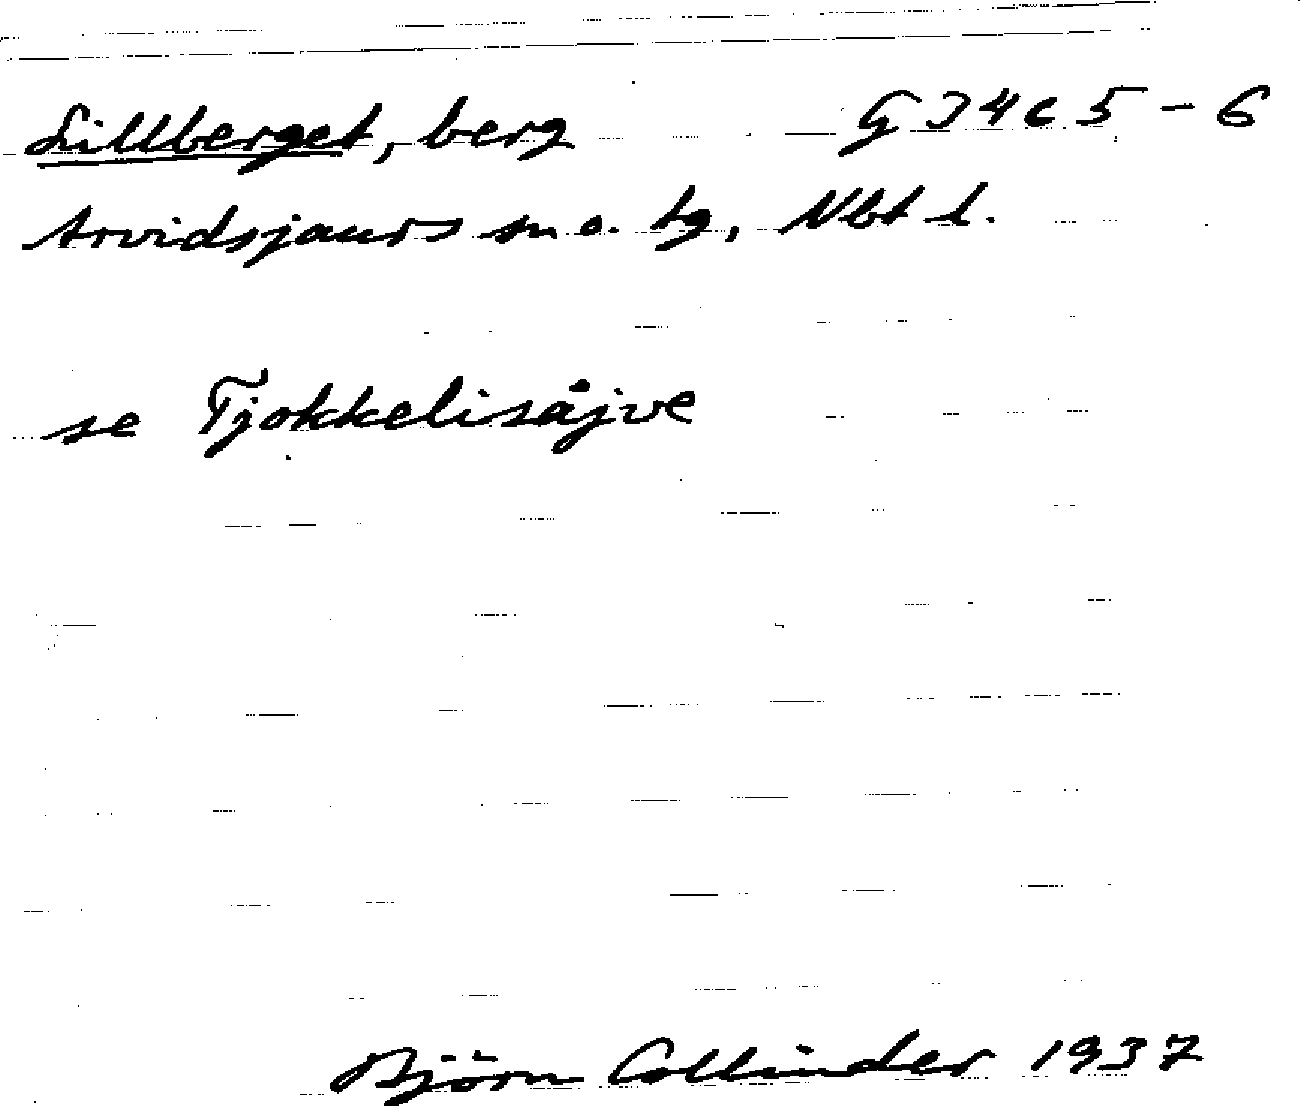 Lillberget, berg G J 4 c 5 - 6
Arvidsjaurs sn o. tg, Nbt l.
se Tjokkelisåjve
Björn Collinder 1937